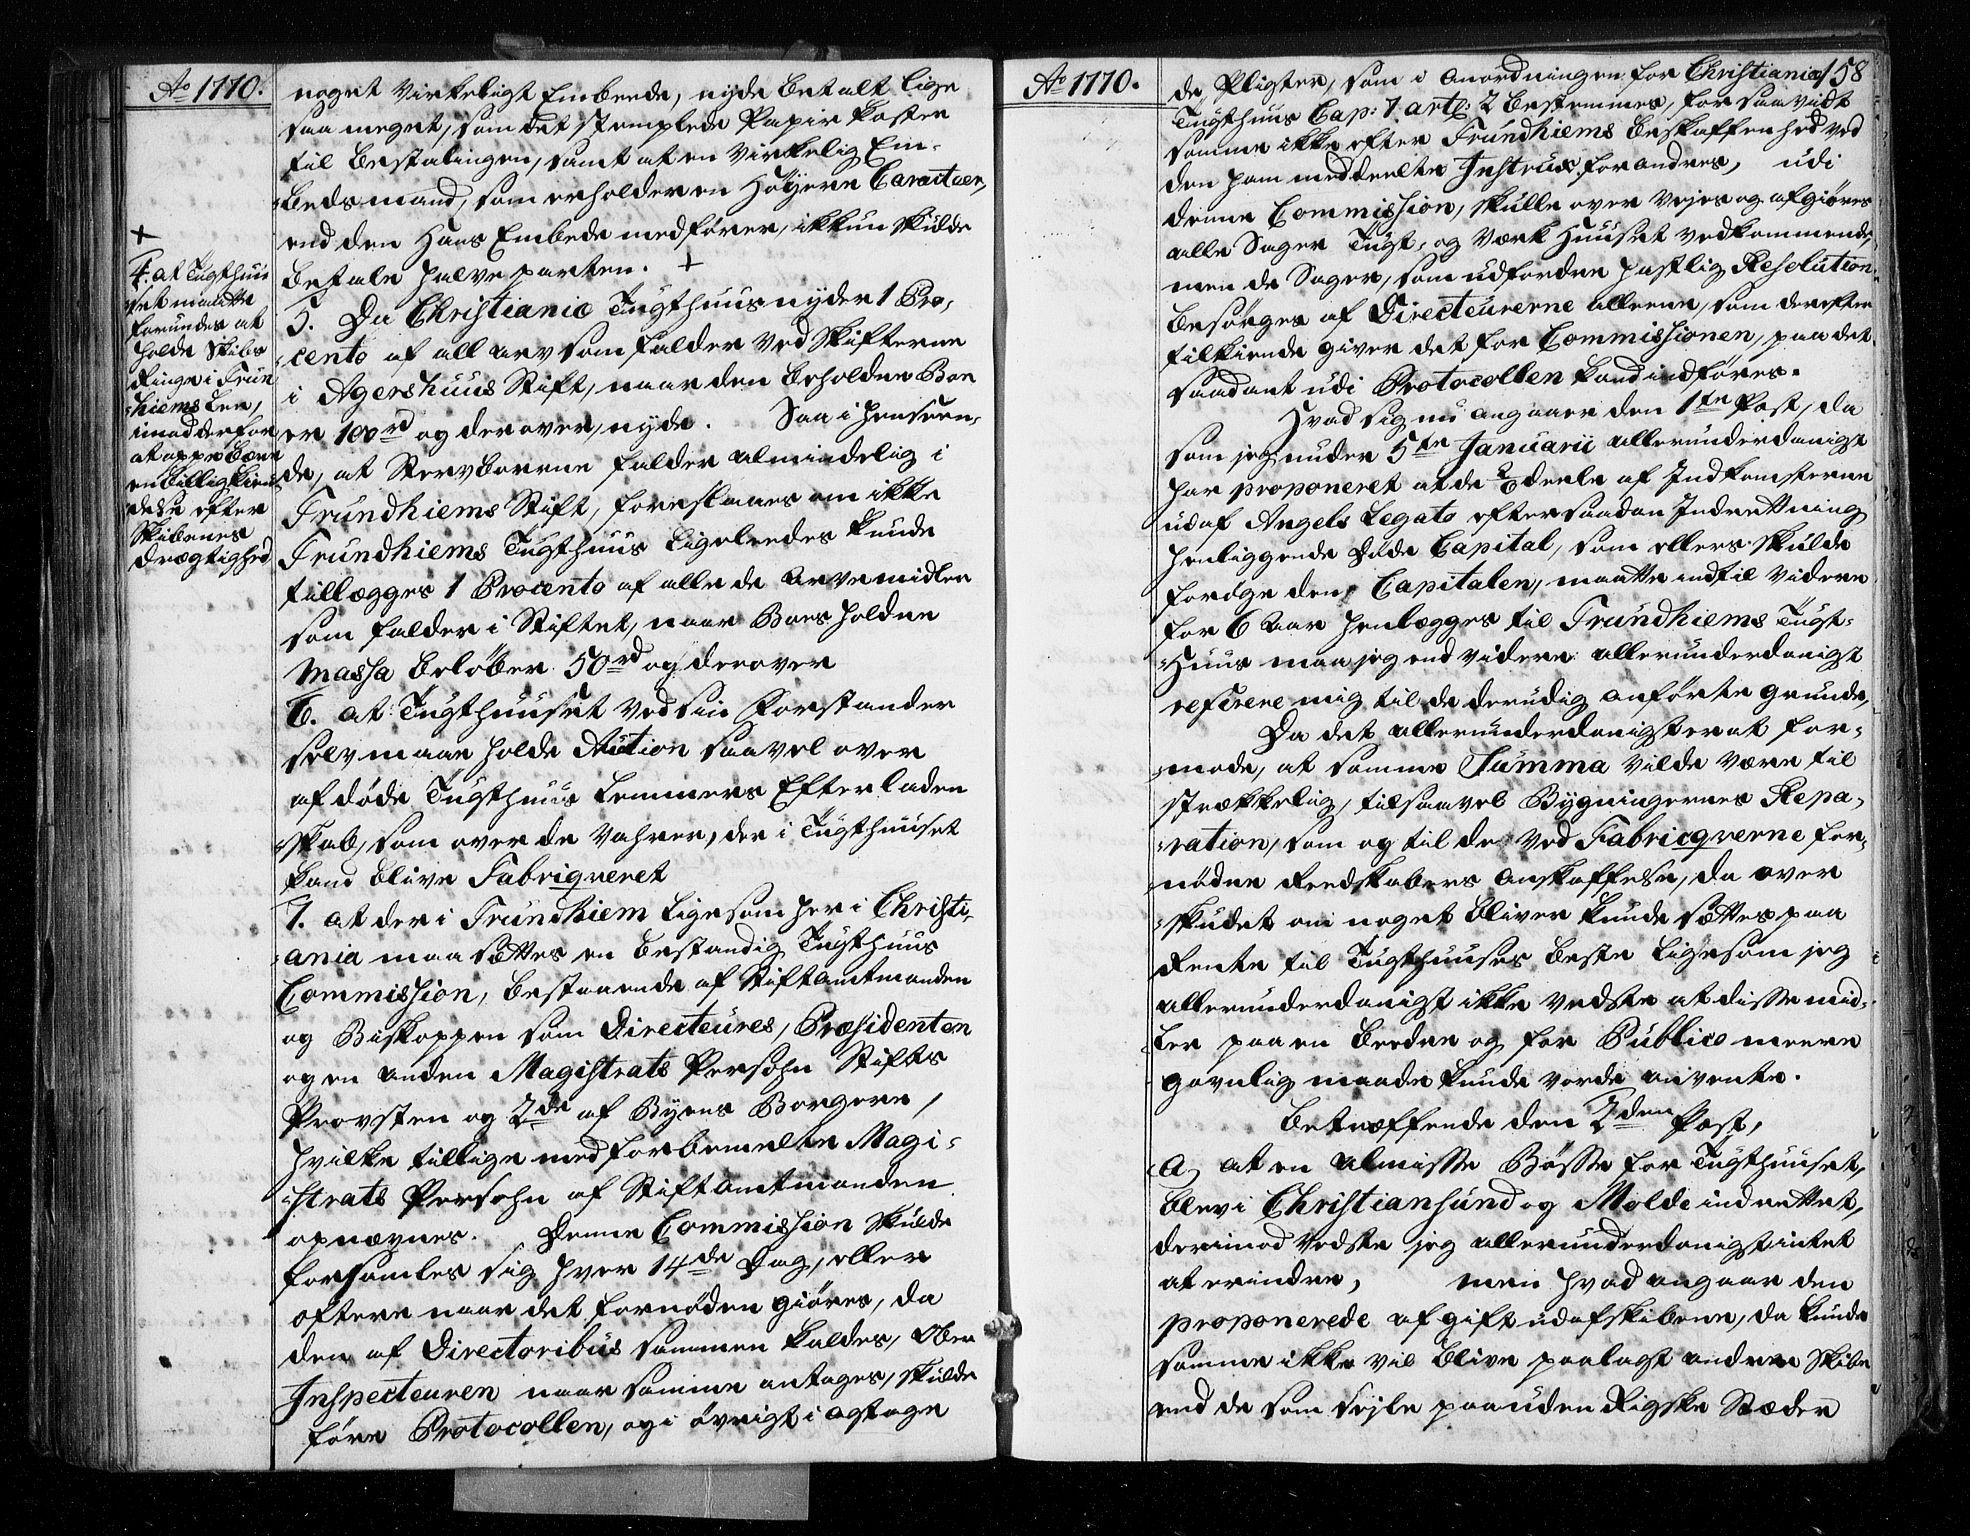 Ao 1770.
noget Virkeligt Embede, nyde betalt lige
saa meget, som det stemplede Papir koster
til Bestalingen, samt at en Virkelig Em-
beds mand, som erholder en Høyere Caracteer,
end den Hans Embede medfører, ikkun skulde
betale halve parten. +
+
4. at Tugthuu
set maatte
forundes at
holde Skibs
Ringe i Trun
hiems Len,
imod derfor
at oppebære
en billig kien
delse efter
Skibenes
drægtighed
5. Da Christianiæ Tugthuus nyder 1 Pro,
cento af all arv som falder ved Skifterne
i Agershuus Stift, naar den beholdne Boe
er 100 rd og derover, nyde. Saa i henseen-
de, at Stervboerne falder almindelig i
Trundhiems Stift, foreslaaes om ikke
Trundhiems Tugthuus ligeledes kunde
tillægges 1 Procento af alle de Arvemidler
som falder i Stiftet, naar Boes holdne
Massa beløber 50 rd og derover
6. at Tugthuuset ved sin Forstander
selv maae holde Aution saavel over
afdøde Tugthuus Lemmers Efterladen
skab, som over de Vahrer, der i Tugthuuset
kand blive Fabriqveret
7. at der i Trundhiem ligesom her i Christi-
ania maa sættes en bestandig Tugthuus
Commission, bestaaende af Stiftamtmanden
og Biskoppen som Directeures, Præsidenten
og en anden Magistrats Persohn Stifts
Provsten og 2de af Byens Borgere,
hvilke tillige med forbemelte Magi-
strats Persohn af Stiftamtmanden
opnævnes. Denne Commission skulde
forsamles sig hver 14de Dag, eller
oftere naar det fornøden giøres, da
den af Directoribus sammen kaldes, Ober
Inspecteuren naar samme antages, skulde
føre Protocollen, og i øvrigt i agtage
Ao 1770.
158
de Pligter, som i Anordningen for Christianiæ
Tugthuus Cap: 7. artl: 2 bestemmes, for saa vidt
samme ikke efter Trundhiems beskaffenhed ved
den ham meddeelte Instrux forandres, udi
denne Commission, skulle over vejes og afgiøres
alle Sager Tugt- og Værk Huuset vedkommende,
men de Sager, som udfordre hastig Resolution
besørges af Directeurerne allene, som derefter
tilkiende giver det for Commissionen, paa det
saadant udi Protocollen kand indføres.
Hvad sig nu angaaer den 1te Post, da
som jeg under 5te Januarii allerunderdanigst
har proponeret at de 2de deele af Indkomsterne
udaf Angels Legato efter saadan Indretning
henliggende døde Capital, som ellers skulde
forøge den Capitalen, maatte indtil videre
for 6 Aar henlægges til Trundhiems Tugt-
Huus maa jeg end videre allerunderdanigst
referere mig til de derudj anførte grunde,
Da det allerunderdanigst er at for-
mode, at samme Summa vilde være til
strækkelig, til saavel Bygningernes Repa-
ration, som og til de ved Fabricqverne for-
nødne Reedskabers anskaffelse, da over
skudet om noget bliver kunde sættes paa
Rente til Tugthuuses beste ligesom jeg
allerunderdanigst ikke vedste at disse mid-
ler paa en bedre og for Publico meere
gavnlig maade kunde vorde anvente.
Betræffende den 2den Post,
a, at en Almisse Bøsse for Tugthuuset,
blev i Christiansund og Molde indrettet,
derimod vedste jeg allerunderdanigst intet
at erindre, men hvad angaar den
proponerede afgift udaf skibene, da kunde
samme ikke vel blive paalagt andre Skibe
end de som sejle paa uden Rigske Stæder